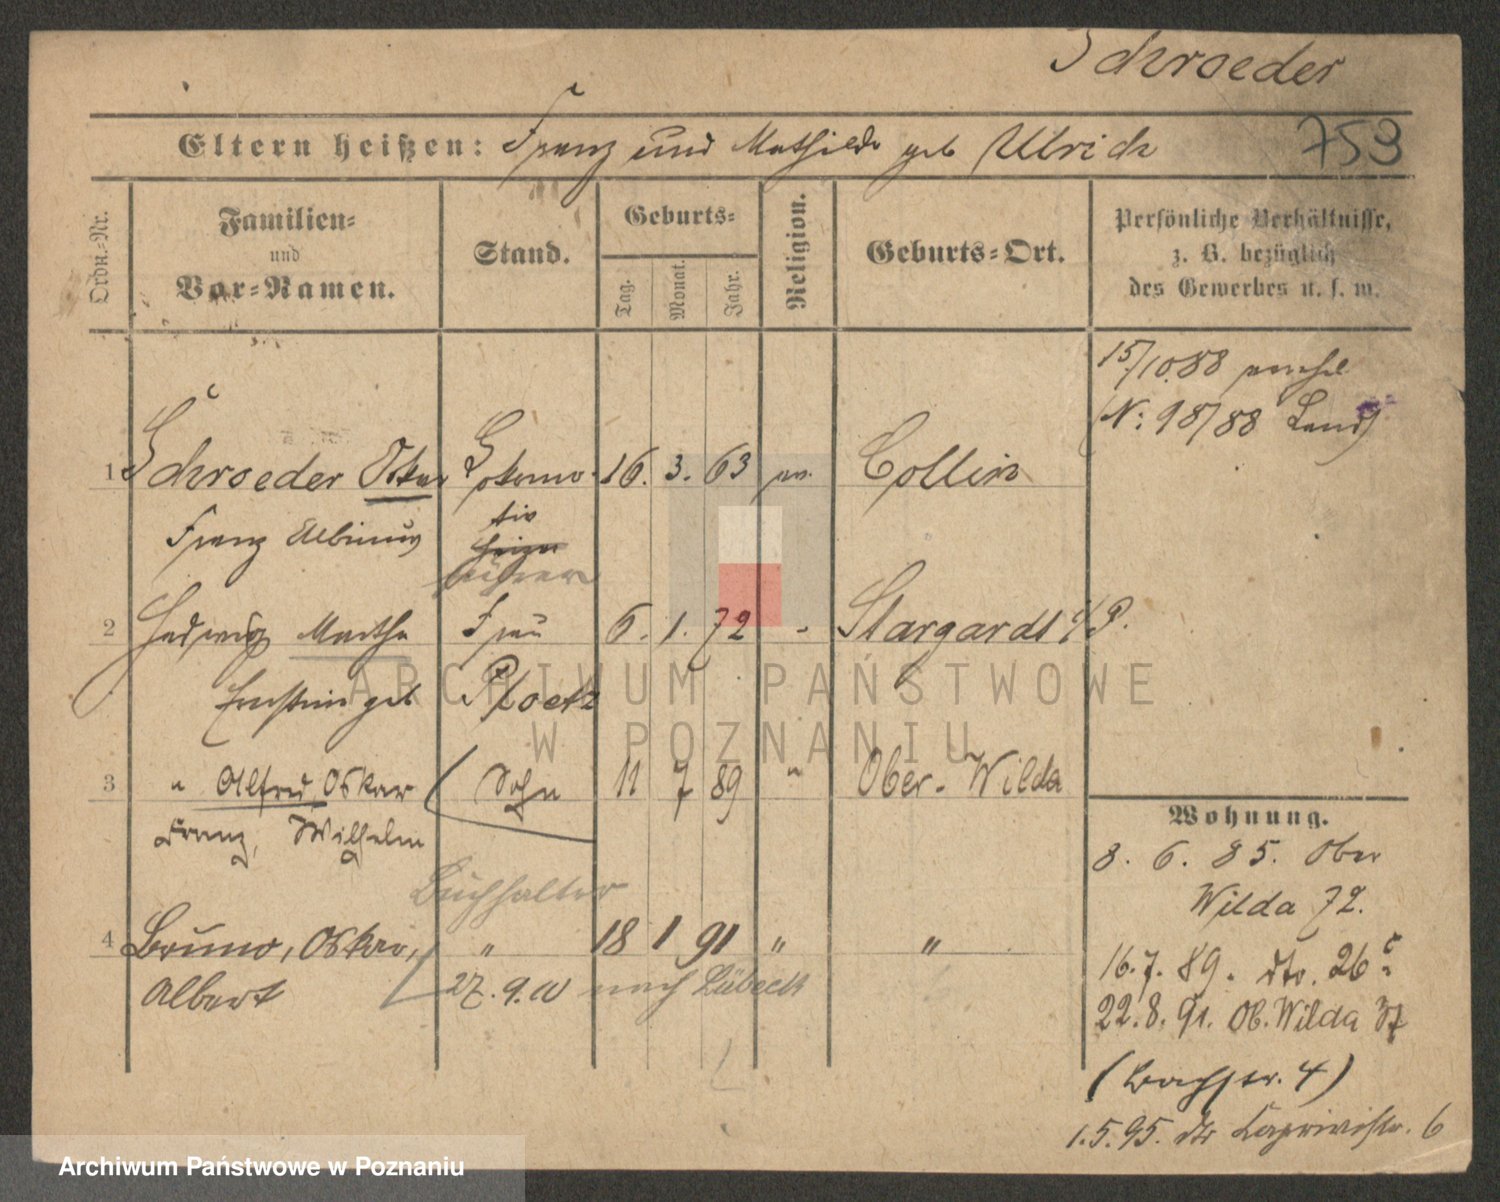 Schroeder
Eltern heißen: Franz und Mathilde geb Ulrich
753
Ordn.-Nr.
Familien-
und
Vor-Namen.
Stand.
Geburts-
Tag.
Monat.
Jahr.
Religion.
Geburts-Ort.
Persönliche Verhältnisse,
z. B. bezüglich
des Gewerbes u. s. w.
15/10.88
(N: 98/88 Land)
1 Schroeder Oskar Lokomo- 16. 3. 63 ev. Collin
Franz Albinus tiv
heizer
führer
2 Hedwig Martha Frau 6. 1. 72 - Stargardt i/P.
Ernstine geb Ploetz
3 " Alfred Oskar Sohn 11 7 89 " Ober-Wilda
Franz, Wilhelm
Buchhalter
4 Bruno, Oskar, " 18 1 91 " "
Albert 27. 9. 10 nach Lübeck
Wohnung.
8. 6. 85. Ober
Wilda 72.
16. 7. 89. dto. 26c
22. 8. 91. Ob. Wilda 37
(Bachstr. 4)
1. 5. 95. dto Caprivistr. 6
ARCHIWUM PAŃSTWOWE
W POZNANIU
Archiwum Państwowe w Poznaniu